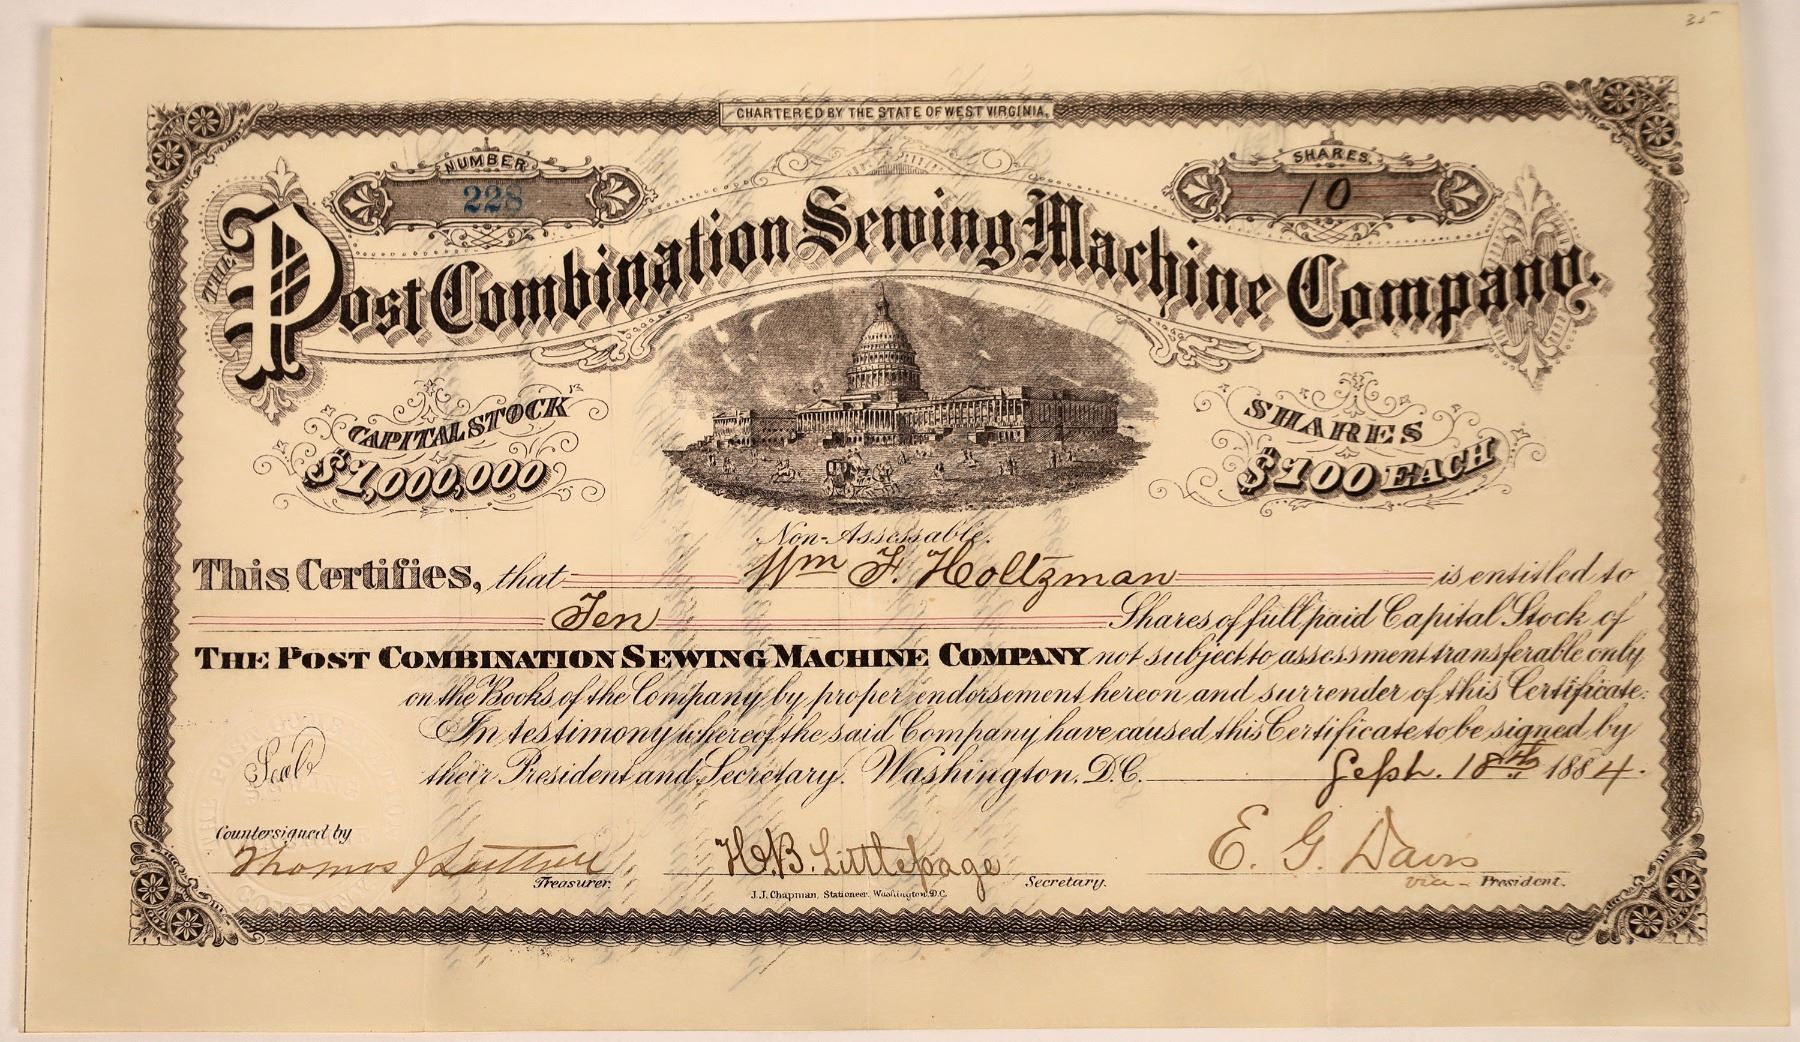 35
CHARTERED BY THE STATE OF WEST VIRGINIA.
NUMBER
228
SHARES.
10
THE Post Combination Sewing Machine Company.
CAPITAL STOCK
$1,000,000
SHARES
$100 EACH
Non-Assessable.
This Certifies, that Wm F. Holtzman is entitled to
Ten Shares of full paid Capital Stock of
THE POST COMBINATION SEWING MACHINE COMPANY not subject to assessment transferable only
on the Books of the Company by proper endorsement hereon and surrender of this Certificate.
In testimony whereof the said Company have caused this Certificate to be signed by
their President and Secretary. Washington, D.C. Sept. 18th 1884.
Seal
Countersigned by
Thomas J Luttrell Treasurer.
H.B. Littlepage Secretary.
E. G. Davis vice - President.
J.J. Chapman, Stationer, Washington, D.C.